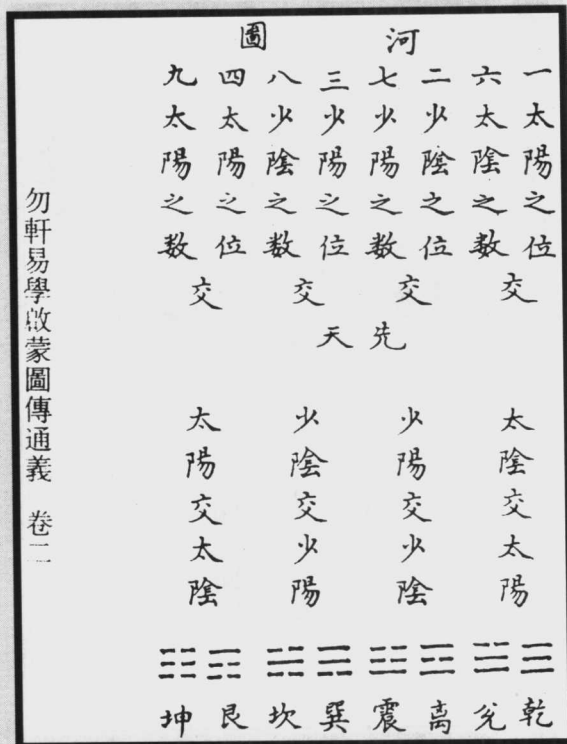 河圖
一太陽之位
六太陰之数
二少陰之位
七少陽之数
三少陽之位
八少陰之数
四太陽之位
九太陽之数
交
交
交
交
先天
太陰交太陽
少陽交少陰
少陰交少陽
太陽交太陰
☰ ☱ ☲ ☳ ☴ ☵ ☶ ☷
乾 兌 离 震 巽 坎 艮 坤
勿軒易學啟蒙圖傳通義 卷二